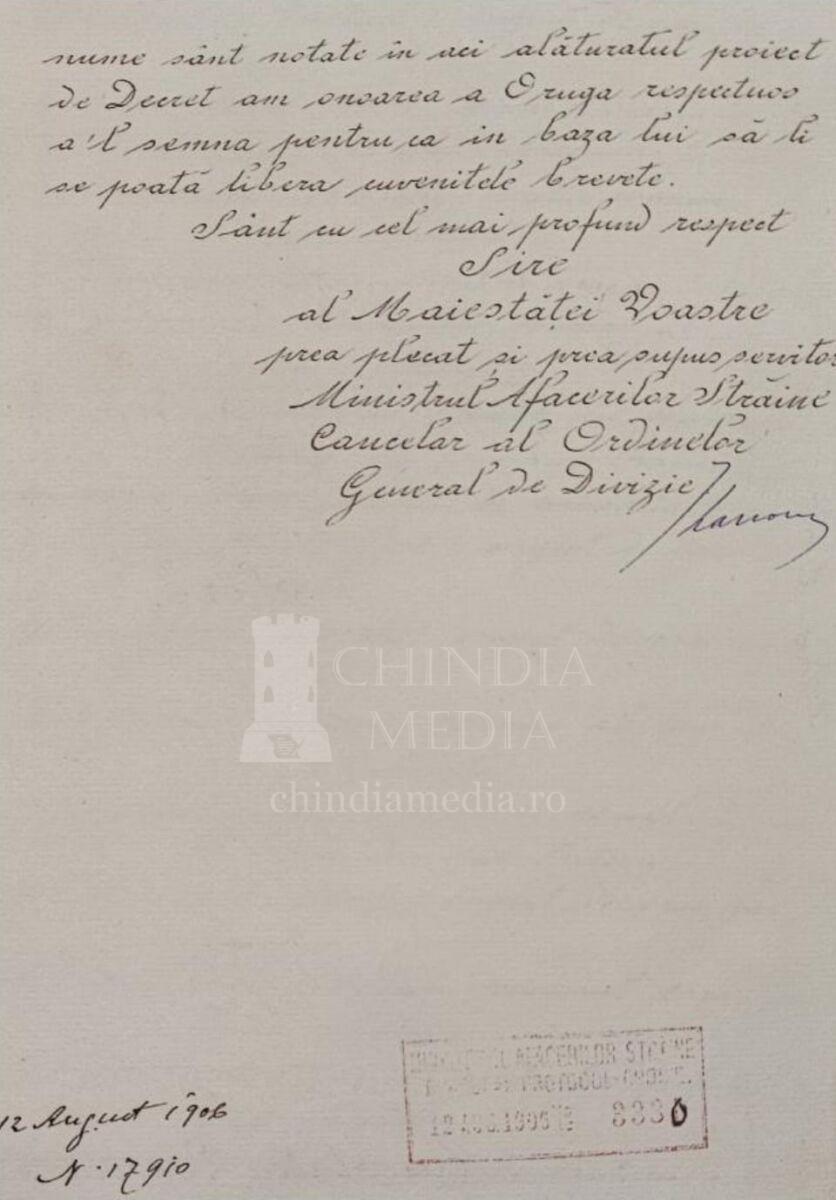 nume sânt notate în aci alăturatul proiect
de Decret am onoarea a O ruga respectuos
a'l semna pentru ca in baza lui să li
se poată libera cuvenitele brevete.
Sânt cu cel mai profund respect
Sire
al Maiestăței Voastre
prea plecat și prea supus servitor
Ministrul Afacerilor Străine
Cancelar al Ordinelor
General de Divizie
CHINDIA
MEDIA
chindiamedia.ro
AFACERILOR STREINE
PROTOCOL
12 AUG. 1906 № 3330
12 August 1906
N. 17910